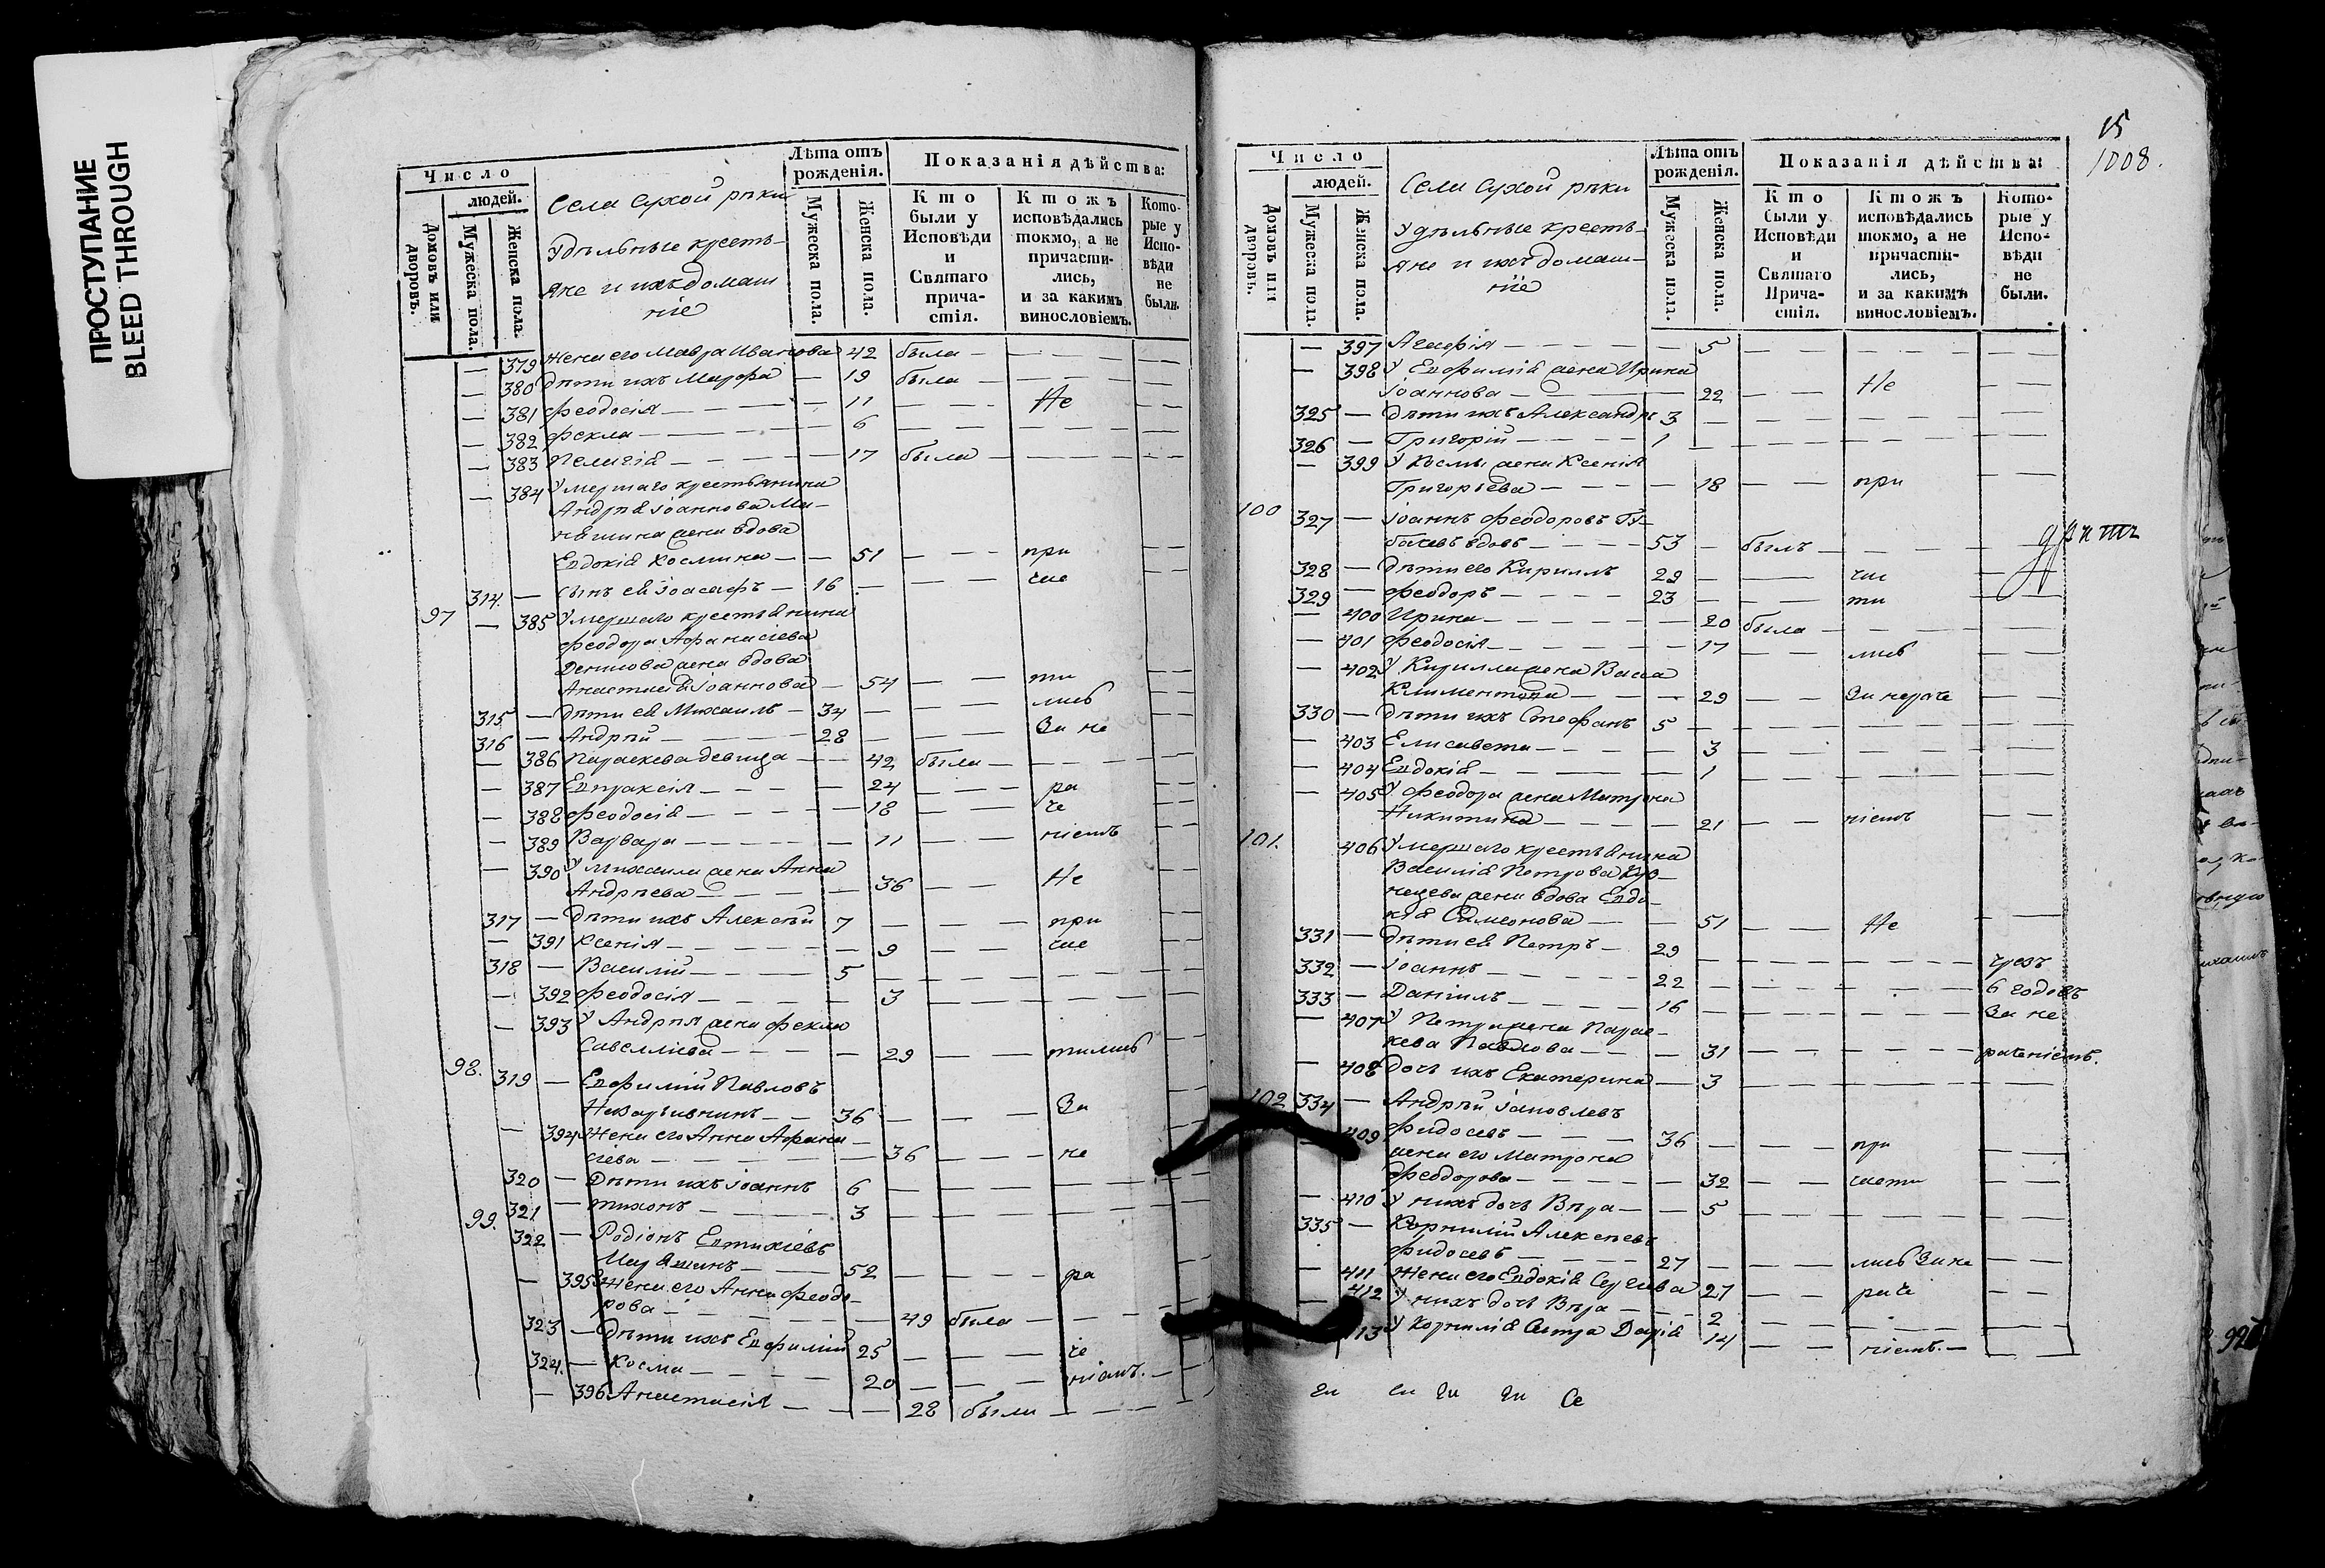 ПРОСТУПАНИЕ
BLEED THROUGH
Число
людей.
Домовъ или дворовъ.
Мужеска пола.
Женска пола.
Села Сухой рѣки
Удѣльные кресть-
яне и ихъ домаш
ніе
Лѣта отъ рожденія.
Мужеска пола.
Женска пола.
Показанія дѣйства:
Кто были у Исповѣди и Святаго причастія.
Ктожъ исповѣдались токмо, а не причастились, и за какимъ винословіемъ.
Которые у Исповѣди не были.
— 379 Жена его Мавра Иванова 42 была — — —
— 380 Дѣти ихъ Марфа — 19 была — — —
— 381 Феодосія — — 11 — — Не — —
— 382 Фекла — — 6 — — — —
— 383 Пелагія — — 17 была — — —
— 384 Умершаго крестьянина
Андрея Іоаннова Ма-
жена вдова
Евдокія Космина — — 51 — — при — —
314. — Сынъ ея Іоасафъ — 16 — — — час — —
97 — 385 Умершаго крестьянина
Феодора Афанасіева
Денисова жена вдова
Анастасія Іоаннова — 54 — — ти — —
315 — Дѣти ея Михаилъ — 34 — — — лись — —
316 — Андрей — — 28 — — — За не — —
— 386 Параскева девица — — 42 была — — —
— 387 Евпраксія — — 24 — — ра — —
— 388 Феодосія — — 18 — — че — —
— 389 Варвара — — 11 — — ніемъ — —
— 390 У Михаила жена Анна
Андреева — — 36 — — Не — —
317 — Дѣти ихъ Алексѣй 7 — — — при — —
— 391 Ксенія — — 9 — — час — —
318 — Василій — — 5 — — — —
— 392 Феодосія — — 3 — — — —
— 393 У Андрея жена Фекла
Савелліева — — 29 — — тились — —
98. 319 — Евфимій Павловъ
36 — — — За — —
— 394 Жена его Анна Афана-
сіева — — 36 — — не — —
320 — Дѣти ихъ Іоаннъ 6 — — — —
321 — Тихонъ — — 3 — — — —
99. 322 — Родіонъ Евтихіевъ
52 — — — ра — —
— 395 Жена его Анна Феодо-
рова — — 49 была — — —
323 — Дѣти ихъ Евфимій 25 — — — че — —
324. — Косма — — 20 — — — ніемъ. — —
— 396 Анастасія — — 28 была — — —
15
1008.
Число
людей.
Домовъ или дворовъ.
Мужеска пола.
Женска пола.
Села Сухой рѣки
Удѣльные кресть-
яне и ихъ домаш-
ніе
Лѣта отъ рожденія.
Мужеска пола.
Женска пола.
Показанія дѣйства:
Кто были у Исповѣди и Святаго Причастія.
Ктожъ исповѣдались токмо, а не причастились, и за какимъ винословіемъ.
Которые у Исповѣди не были.
— 397 Агафія — — 5 — — — —
— 398 У Евфимія жена Ирина
Іоаннова — — 22 — — Не — —
325 — Дѣти ихъ Александръ 3 — — — —
326 — Григорій — — 1 — — — —
— 399 У Космы жена Ксенія
Григорьева — — 18 — — при — —
100 327 — Іоаннъ Феодоровъ Гу-
вдовъ — — 53 — былъ — — —
328 — Дѣти его Кириллъ 29 — — час — —
329 — Феодоръ — — 23 — — — ти — —
— 400 Ирина — — 20 была — — —
— 401 Феодосія — — 17 — — лись — —
— 402 У Кирилла жена Васса
Климентова — — 29 — — За нераче — —
330 — Дѣти ихъ Стефанъ 5 — — — —
— 403 Елисавета — — 3 — — — —
— 404 Евдокія — — 1 — — — —
— 405 У Феодора жена Матрона
Никитина — — 21 — — ніемъ — —
101. 406 Умершаго крестьянина
Василія Петрова Куз-
нецова жена вдова Евдо-
кія Симеонова — — 51 — — Не — —
331 — Дѣти ея Петръ — 29 — — — — чрезъ
332 — Іоаннъ — — 22 — — — — 6 годовъ
333 — Даніилъ — — 16 — — — — За не
— 407 У Петра жена Парас-
кева Павлова — — 31 — — — — раченіемъ.
— 408 дочь ихъ Екатерина — 3 — — — —
102 334 — Андрей Іаковлевъ
Фидосевъ — — 36 — — при — —
409 жена его Матрона
Феодорова — — 32 — — части — —
— 410 У нихъ дочь Вѣра — — 5 — — — —
335 — Корнилій Алексѣевъ
Фидосевъ — — 27 — — лись За не — —
— 411 Жена его Евдокія Сергѣева 27 — — раче — —
— 412 У нихъ дочь Вѣра — — 2 — — — —
413 У Корнилія сестра Дарія 14 — — ніемъ. — —